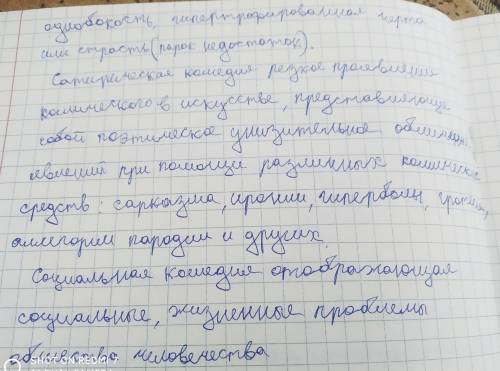 однобокость, гипертрофированная черта
или страсть (порок недостаток).
Сатирическая комедия резкое проявлении
комического в искусстве, представляющие
собой поэтическое унизительное обличение
явлений при помощи различных комических
средств: сарказма, иронии, гиперболы, гротеска,
аллегории пародии и других.
Социальная комедия отображающая
социальные, жизненные проблемы
общества человечества
SHOT ON REDMI 7